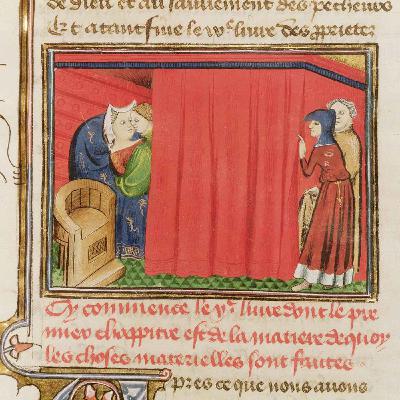 de dieu et au sauvement des pecheurs
Et atant fine le .vͤ. livre des proprietez
Cy commence le .vͤ. livre dont le pre
mier chappitre est de la matiere de quoy
les choses materielles sont faites
pres ce que nous avons